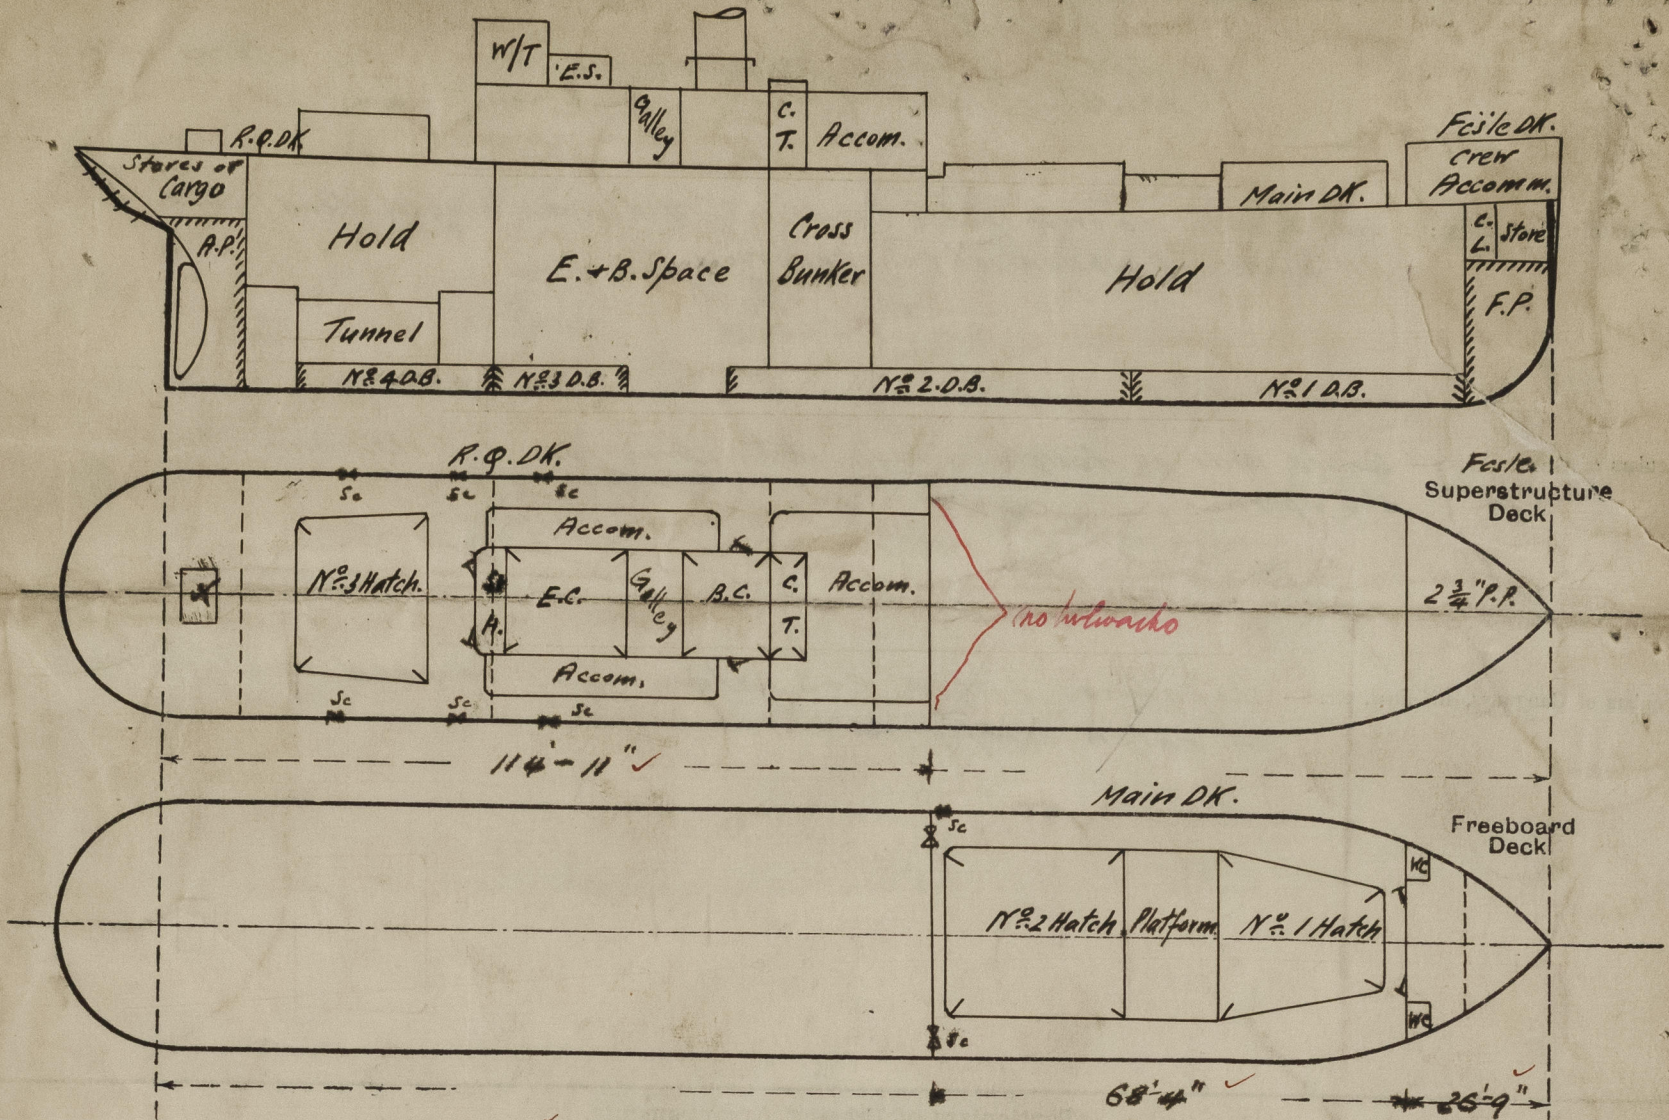 W/T
E.S.
Galley
C.
T.
Accom.
R.Q.DK
Fcsle DK.
Crew
Accomm.
Stores or
Cargo
A.P.
Hold
Tunnel
E. + B. Space
Cross
Bunker
Main DK.
Hold
C.
L.
Store
F.P.
No 4 D.B.
No 3 D.B.
No 2. D.B.
No 1 D.B.
R.Q.DK.
Sc
Sc
Sc
Fcsle.
Superstructure
Deck
No 3 Hatch.
Accom.
H.
E.C.
Galley
B.C.
C.
T.
Accom.
Accom.
no
2 3/4" P.P.
Sc
Sc
Sc
114'-11"
Main DK.
Freeboard
Deck
Sc
WC
No 2 Hatch
Platform
No 1 Hatch
WC
Sc
68'-4"
26'-9"